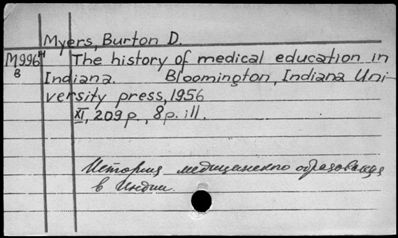 Myers, Burton D.
M996 H The history of medical education in
B Indiana. Bloomington, Indiana Uni-
versity press, 1956
XI, 209 p., 8 p. ill.
История медицинского образования
в Индии.